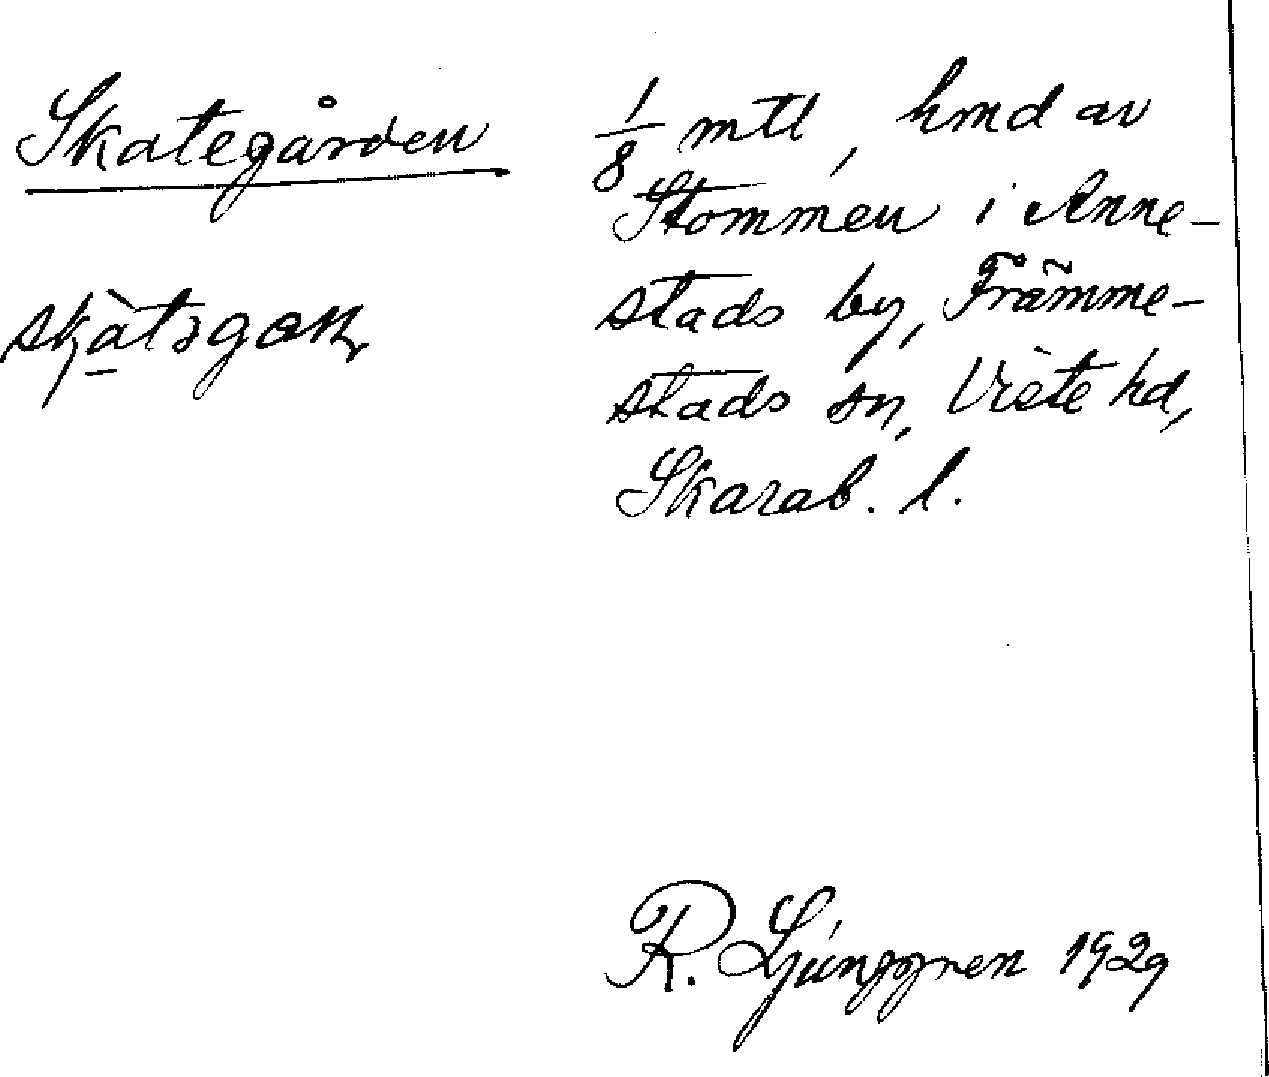 Skategården
1/8 mtl, hmd av
Stommen i Anne-
stads by, Främme-
stads sn, Viste hd,
Skarab. l.
R. Ljunggren 1929